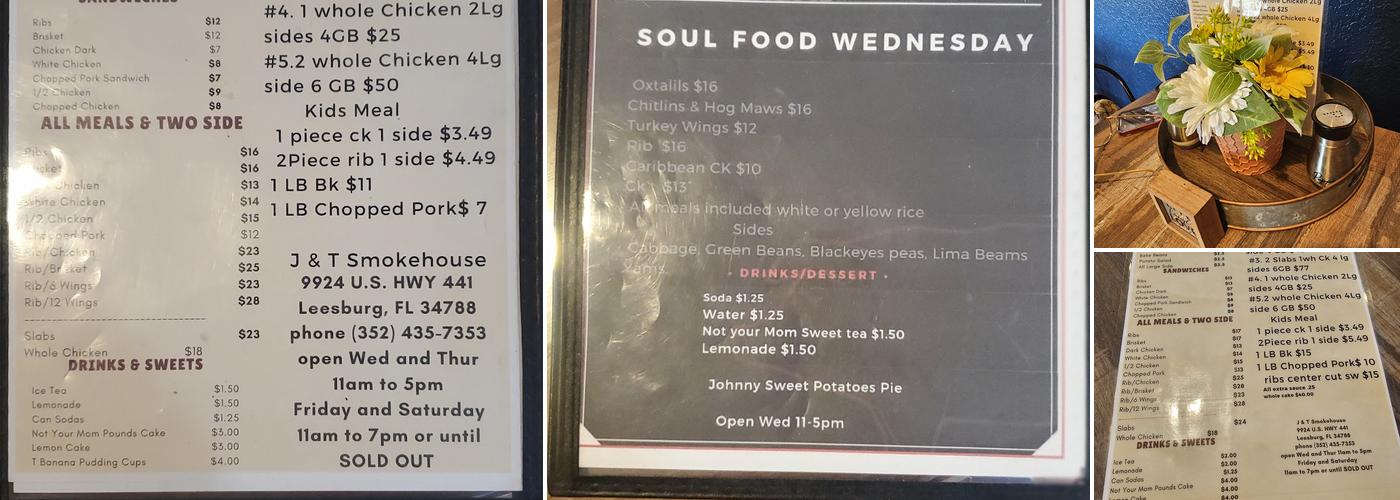 SANDWICHES
Ribs $12
Brisket $12
Chicken Dark $7
White Chicken $8
Chopped Pork Sandwich $7
1/2 Chicken $9
Chopped Chicken $8
ALL MEALS & TWO SIDE
Ribs $16
$16
Chicken $13
White Chicken $14
1/2 Chicken $15
Chopped Pork $12
Rib/Chicken $23
Rib/Brisket $25
Rib/6 Wings $23
Rib/12 Wings $28
Slabs $23
Whole Chicken $18
DRINKS & SWEETS
Ice Tea $1.50
Lemonade $1.50
Can Sodas $1.25
Not Your Mom Pounds Cake $3.00
Lemon Cake $3.00
T Banana Pudding Cups $4.00
#4. 1 whole Chicken 2Lg
sides 4GB $25
#5.2 whole Chicken 4Lg
side 6 GB $50
Kids Meal
1 piece ck 1 side $3.49
2Piece rib 1 side $4.49
1 LB Bk $11
1 LB Chopped Pork$ 7
J & T Smokehouse
9924 U.S. HWY 441
Leesburg, FL 34788
phone (352) 435-7353
open Wed and Thur
11am to 5pm
Friday and Saturday
11am to 7pm or until
SOLD OUT
SOUL FOOD WEDNESDAY
Oxtalils $16
Chitlins & Hog Maws $16
Turkey Wings $12
Rib $16
Caribbean CK $10
Ck $13
All meals included white or yellow rice
Sides
Cabbage, Green Beans, Blackeyes peas, Lima Beams
Yams
• DRINKS/DESSERT •
Soda $1.25
Water $1.25
Not your Mom Sweet tea $1.50
Lemonade $1.50
Johnny Sweet Potatoes Pie
Open Wed 11-5pm
whole Chicken 2Lg
4GB $25
whole Chicken 4Lg
$3.49
$5.49
Bake Beans
Potato Salad
All Large Side
SANDWICHES
Ribs
Brisket
Chicken Dark
White Chicken
Chopped Pork Sandwich
1/2 Chicken
Chopped Chicken
ALL MEALS & TWO SIDE
Ribs $17
Brisket $17
Dark Chicken $13
White Chicken $14
1/2 Chicken $15
Chopped Pork $13
Rib/Chicken $25
Rib/Brisket $28
Rib/6 Wings $23
Rib/12 Wings $28
Slabs $24
Whole Chicken $18
DRINKS & SWEETS
Ice Tea $2.00
Lemonade $2.00
Can Sodas $1.25
Not Your Mom Pounds Cake $4.00
Lemon Cake $4.00
#3. 2 Slabs 1wh Ck 4 lg
sides 6GB $77
#4. 1 whole Chicken 2Lg
sides 4GB $25
#5.2 whole Chicken 4Lg
side 6 GB $50
Kids Meal
1 piece ck 1 side $3.49
2Piece rib 1 side $5.49
1 LB Bk $15
1 LB Chopped Pork$ 10
ribs center cut sw $15
All extra sauce .25
whole cake $40.00
J & T Smokehouse
9924 U.S. HWY 441
Leesburg, FL 34788
phone (352) 435-7353
open Wed and Thur 11am to 5pm
Friday and Saturday
11am to 7pm or until SOLD OUT